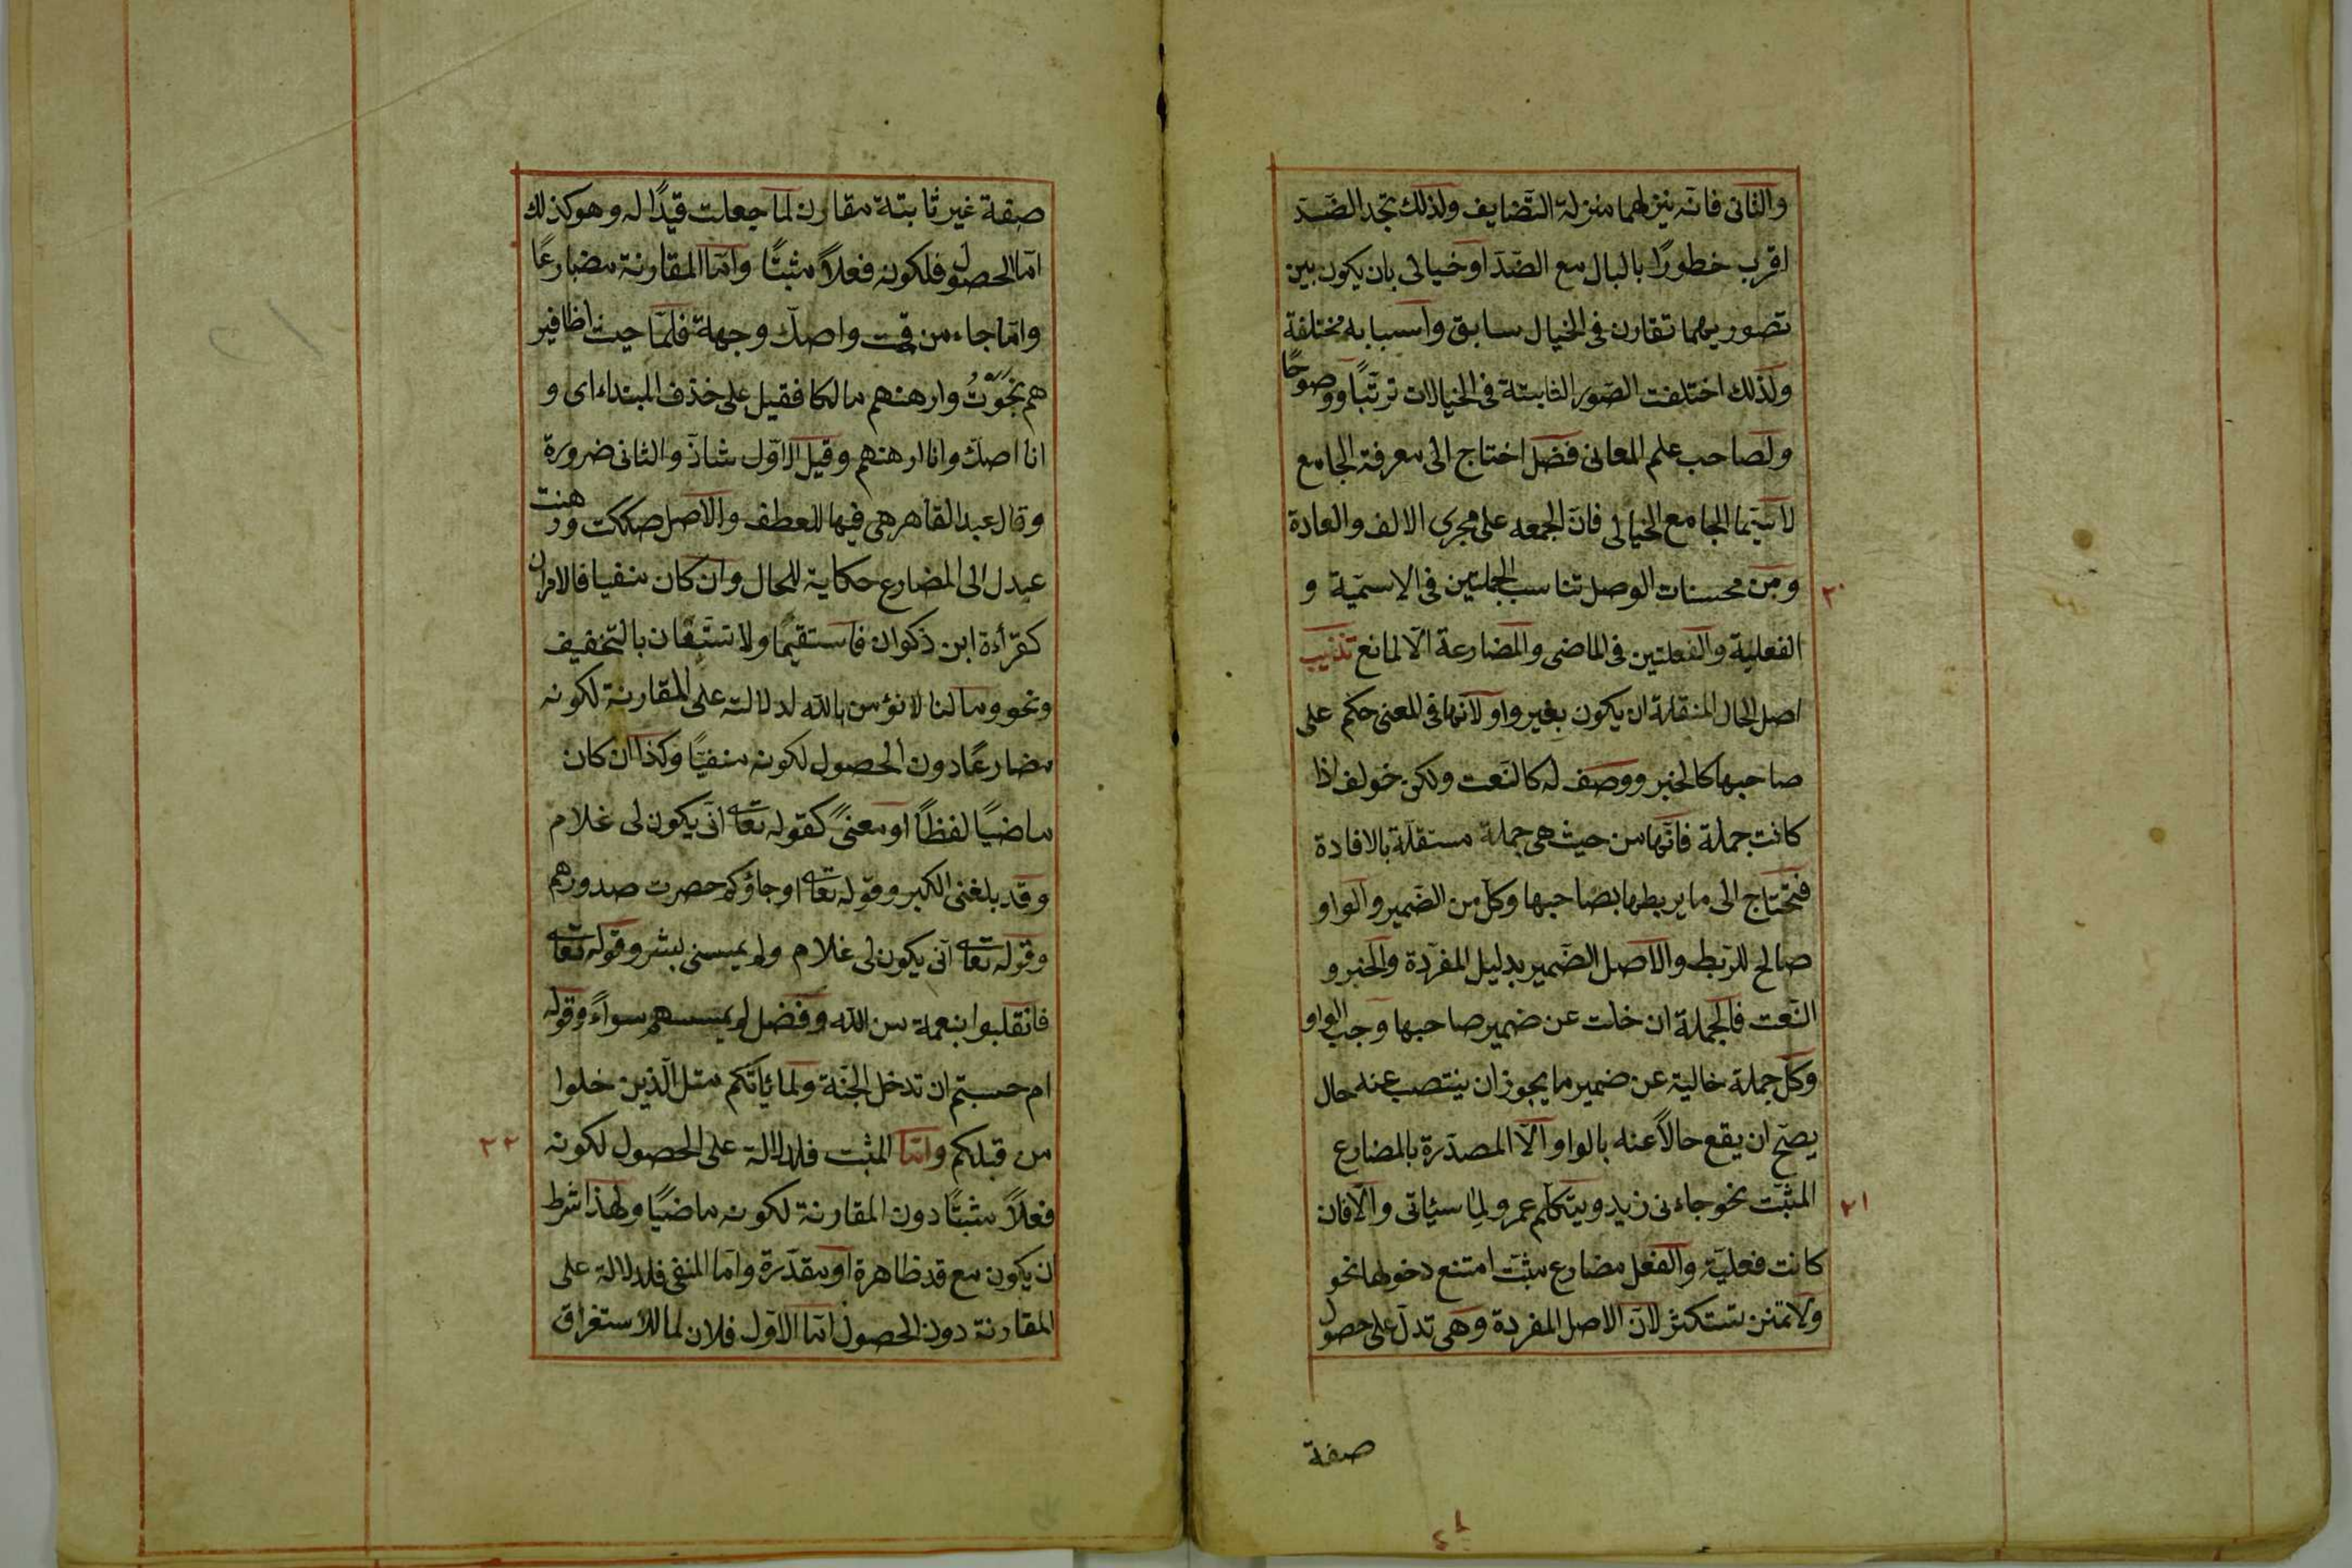 والثانى فانه ينزلهما منزلة التّضايف ولذلك تجد الضّدّ
اقرب خطورًا بالبال مع الضّدّ او خيالى بان يكون بين
تصوريهما تقارن فى الخيال سابق واسبابه مختلفة
ولذلك اختلفت الصّور الثابتة فى الخيالات ترتّبًا ووضوحًا
ولصاحب علم المعانى فضل اختاج الى معرفة الجامع
لاسيّما الجامع الخيالى فانّ الجمعه على مجرى الالف والعادة
٢٠
ومن محسنات الوصل تناسب الجملتين فى الاسميّة و
الفعلية والفعلتين فى الماضى والمضارعة الّا لمانع تذنيب
اصل الحال المنقلة ان يكون بغير واو لانّها فى المعنى حكم على
صاحبها كالخبر ووصف له كالنّعت ولكن خولف اذا
كانت جملة فانّها من حيث هى جملة مستقلّة بالافادة
فتحتاج الى ما يربطها بصاحبها وكلّ من الضّمير والواو
صالح للرّبط والاصل الضّمير بدليل المفردة والخبر و
النّعت فالجملة ان خلت عن ضمير صاحبها وجب الواو
وكلّ جملة خالية عن ضمير ما يجوز ان ينتصب عنه حال
يصحّ ان يقع حالًا عنه بالواو الّا المصدّرة بالمضارع
٢١
المثبّت نحو جاءنى زيد ويتكلّم عمرو لما سيأتى والّا فان
كانت فعليّة والفعل مضارع مثبّت امتنع دخولها نحو
ولا تمنن تستكثر لانّ الاصل المفردة وهى تدلّ على حصول
صفة
صفة غير ثابتة مقارن لما جعلت قيدًا له وهو كذلك
امّا الحصول فلكونه فعلًا مثبتًا وامّا المقارنة مضارعًا
وامّا جاء من قمت واصكّ وجهة فلمّا حيث اظافير
هم نجوتُ وارهنهم مالكا فقيل على خذف المبتداء اى و
انا اصكّ وانا ارهنهم وقيل الاوّل شاذّ والثانى ضرورة
وقال عبد القاهر هى فيها للعطف والاصل صككت ورهنت
عدل الى المضارع حكاية للحال وان كان منفيا فالامران
كقرأءة ابن ذكوان فاستقيما ولا تتّبعان بالتخفيف
ونحو ومالنا لا نؤمن بالله لدلالته على المقارنة لكونه
مضارعًا دون الحصول لكونه منفيّا وكذا ان كان
ماضيًا لفظًا او معنىً كقوله تعالى انّى يكون لى غلام
وقد بلغنى الكبر وقوله تعالى او جاؤكم حصرت صدورهم
وقوله تعالى انّى يكون لى غلام ولم يمسسنى بشر وقوله تعالى
فانقلبوا بنعمة من الله وفضل لم يمسسهم سواءً وقوله
ام حسبتم ان تدخل الجنّة ولما يأتكم مثل الّذين خلوا
٢٢
من قبلكم وامّا المثبت فلدلالة على الحصول لكونه
فعلًا مثبتًا دون المقارنة لكونه ماضيًا ولهذا شرط
ان يكون مع قد ظاهرة او مقدّرة وامّا المنفى فلدلالة على
المقارنة دون الحصول امّا الاوّل فلان لما للاستغراق